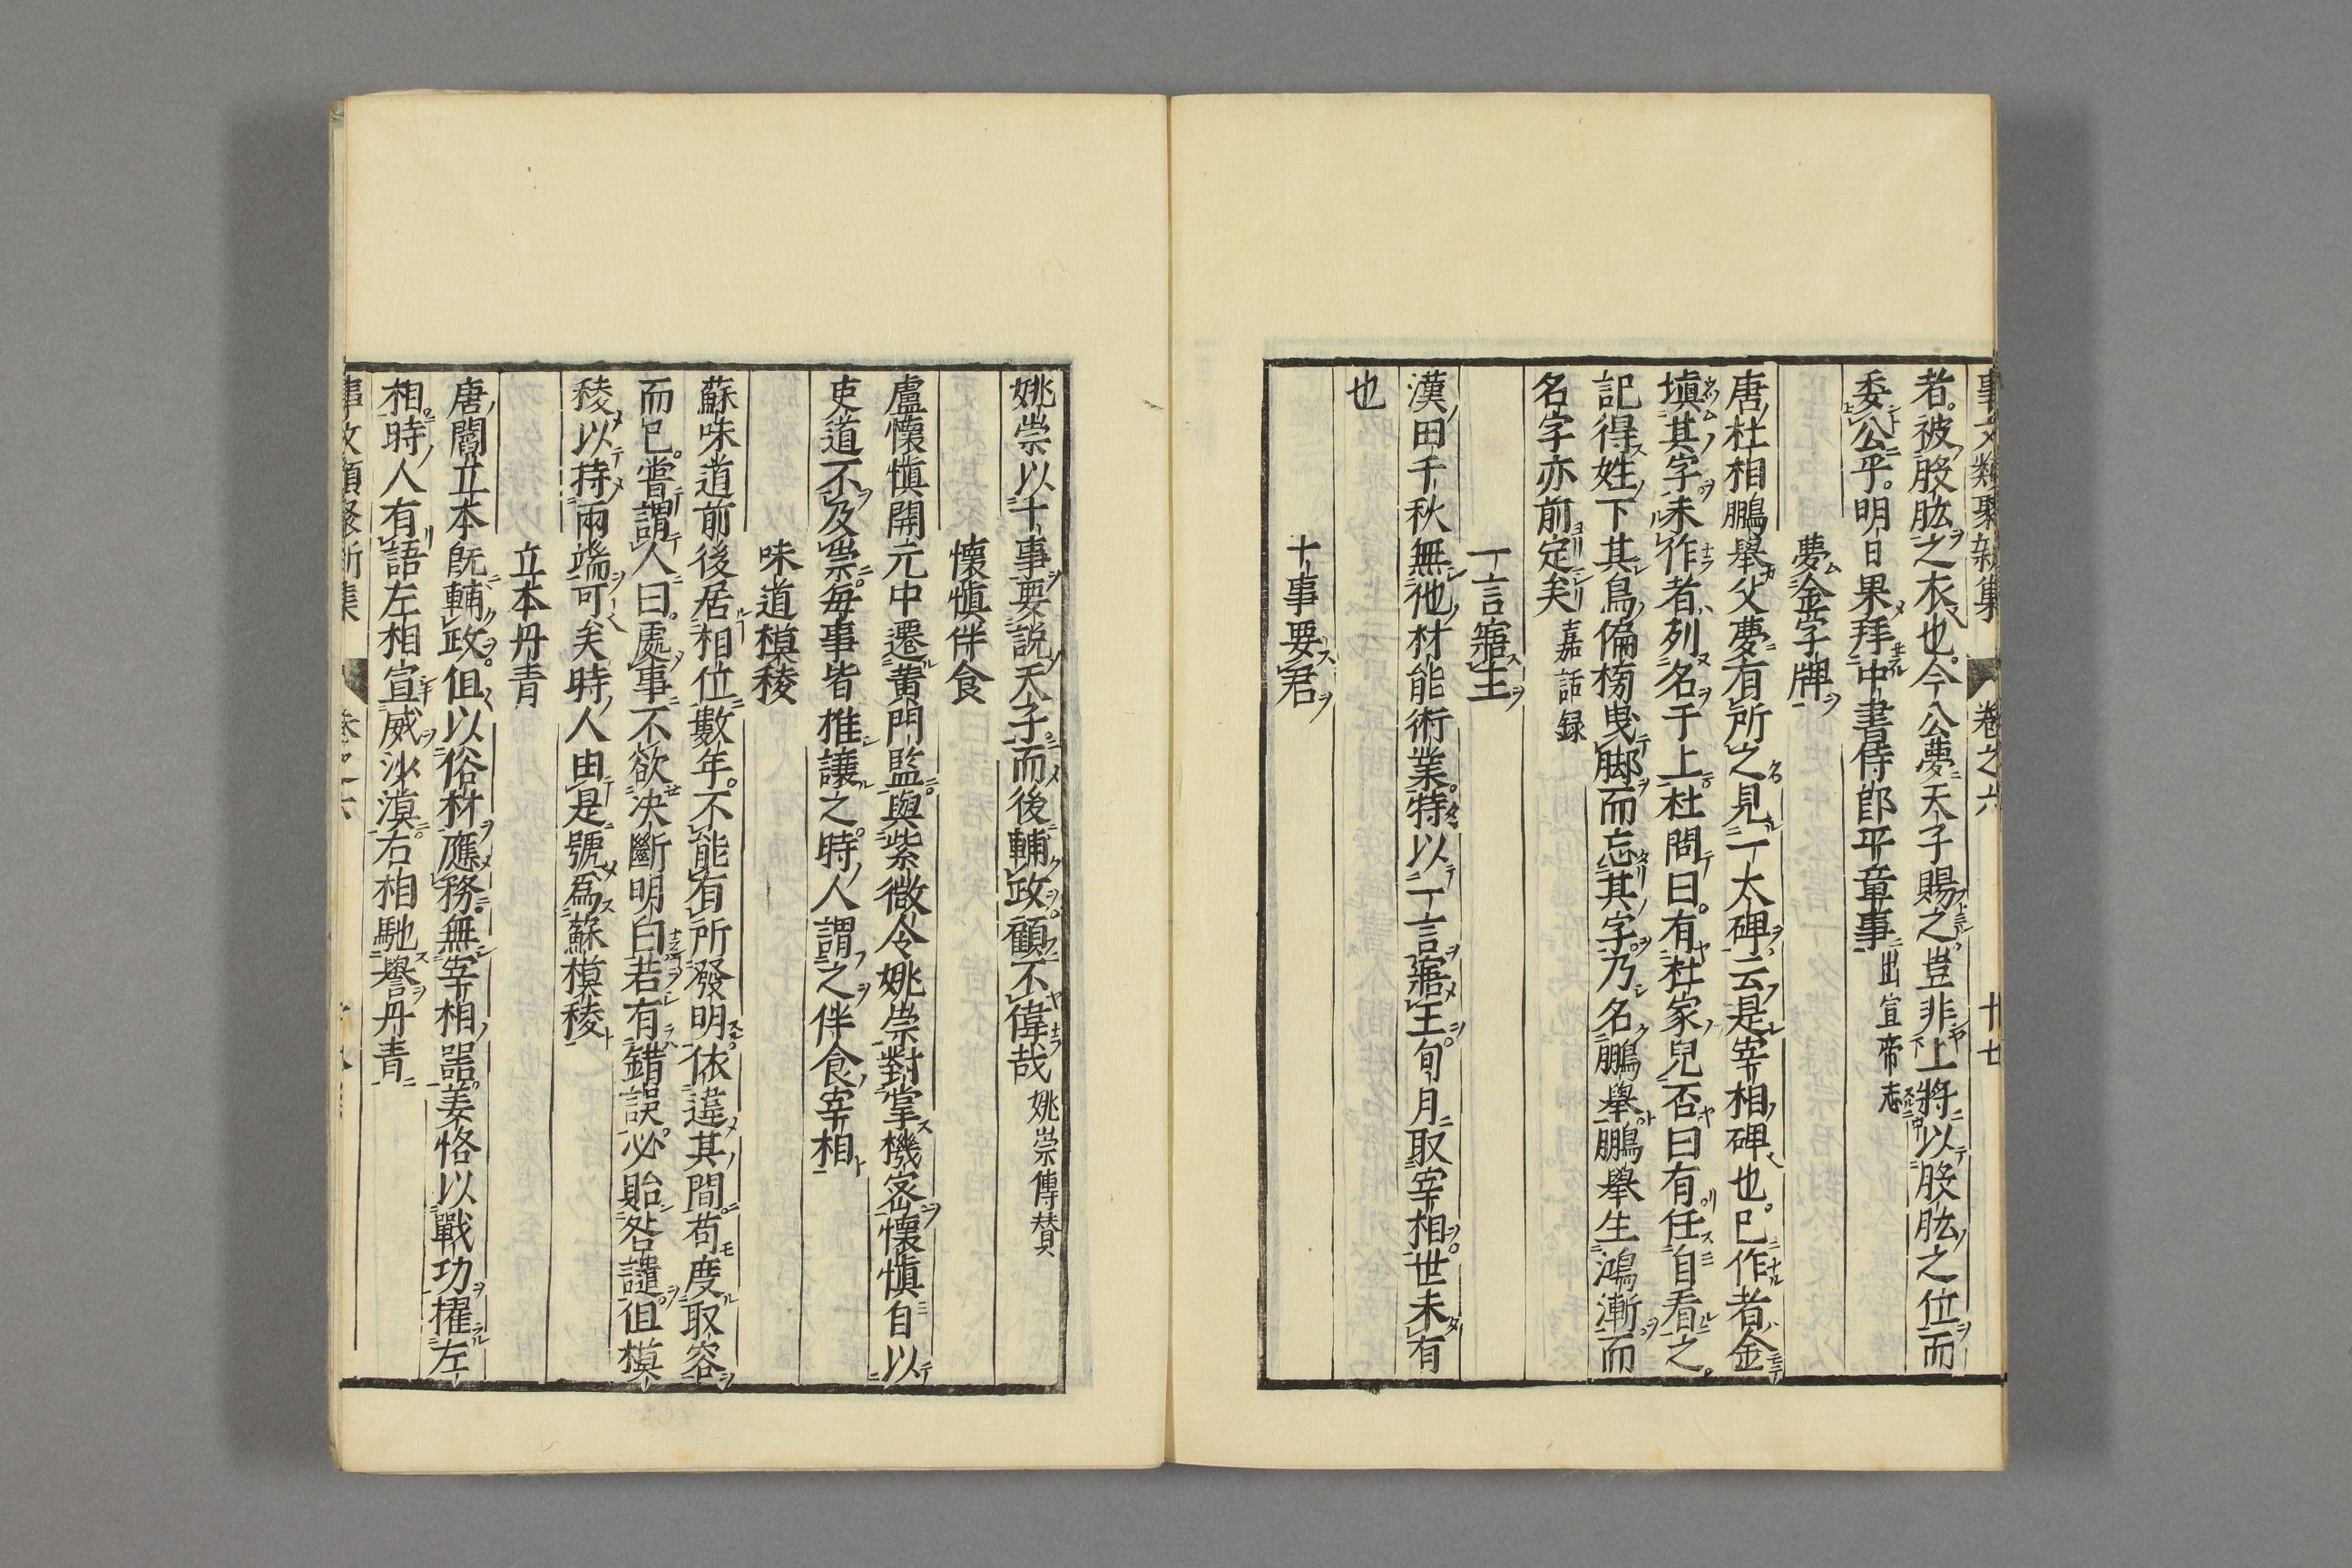 事文類聚新集 卷之六 十七
者被股肱之衣也今公夢天子賜之豈非上將以股肱之位而
委公乎明日果拜中書侍郎平章事 出宣帝志
夢金字牌
唐杜相鵬舉父夢有所之見一大碑云是宰相碑也已作者金
塡其字未作者列名于上杜問曰有杜家兒否曰有任自看之
記得姓下其鳥偏㮄曳脚而忘其字乃名鵬舉鵬舉生鴻漸而
名字亦前定矣 嘉話録
一言寤主
漢田千秋無他材能術業特以一言寤主旬月取宰相世未有
也
十事要君
姚崇以十事要説天子而後輔政顧不偉哉 姚崇傳賛
懷愼伴食
盧懷愼開元中遷黄門監與紫微令姚崇對掌機宻懷愼自以
吏道不及崇每事皆推讓之時人謂之伴食宰相
味道模稜
蘇味道前後居相位數年不能有所發明依違其間苟度取容
而已嘗謂人曰處事不欲决斷明白若有錯誤必貽咎譴但模
稜以持兩端可矣時人由是號爲蘇模稜
立本丹青
唐閻立本旣輔政但以俗材應務無宰相噐姜恪以戰功擢左
相時人有語左相宣威沙漠右相馳譽丹青